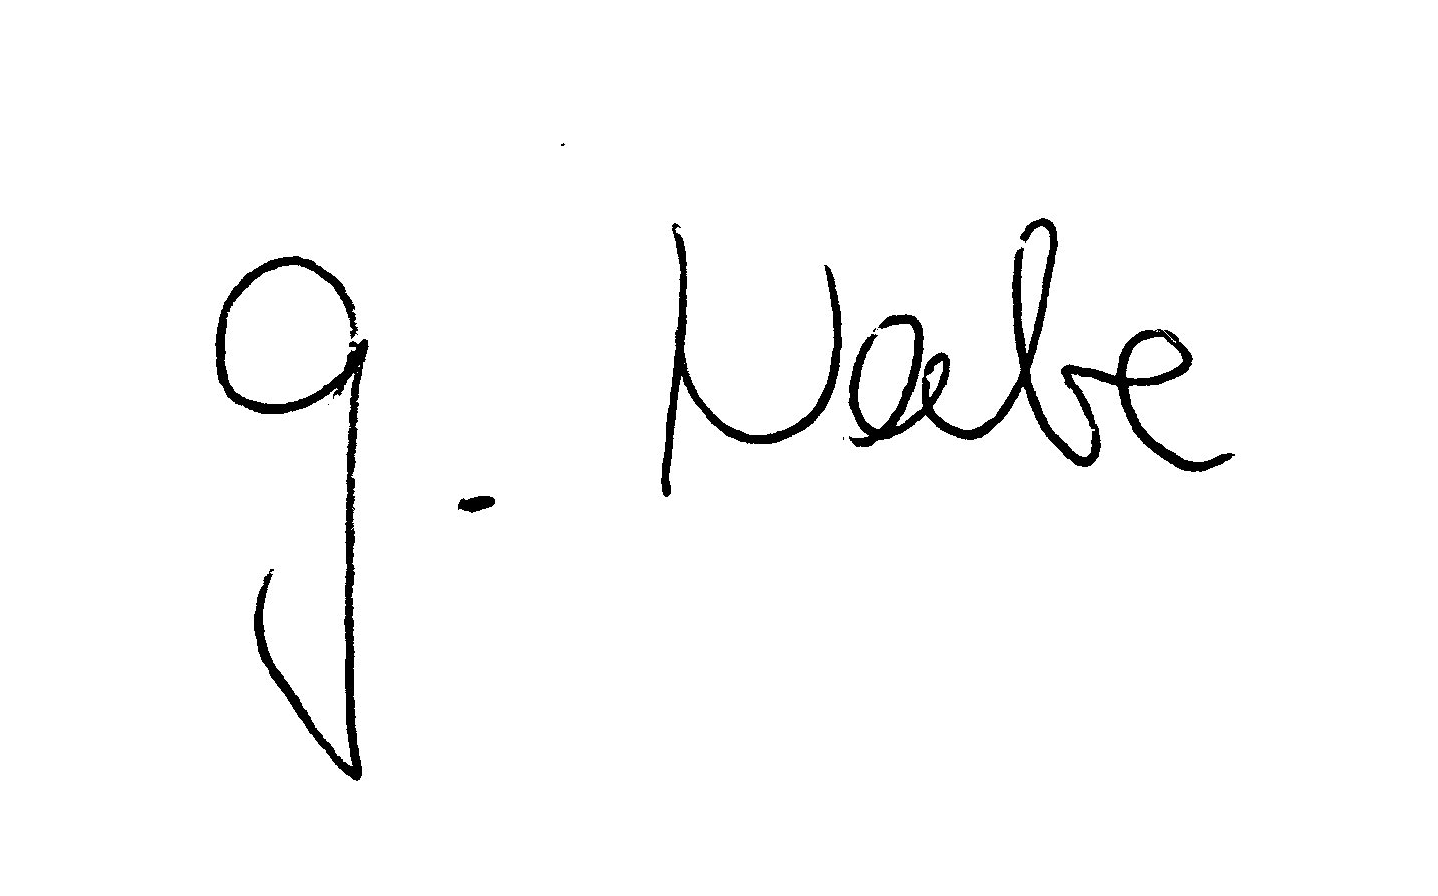 G. Nebe